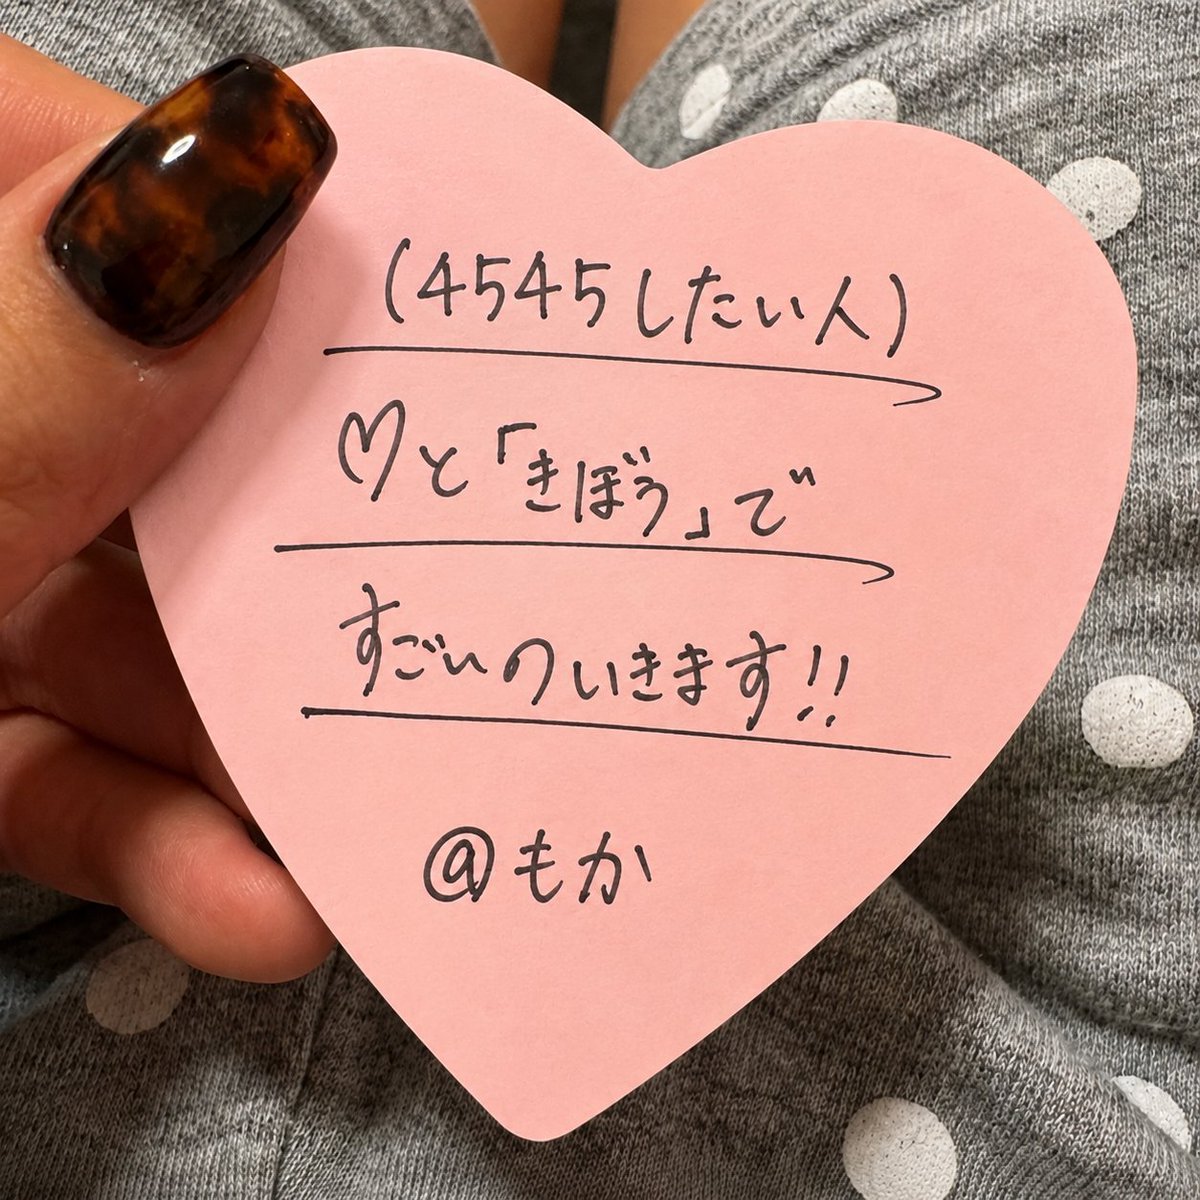 (4545したい人)
♡と「きぼう」で
すごいのいきます!!
@もか